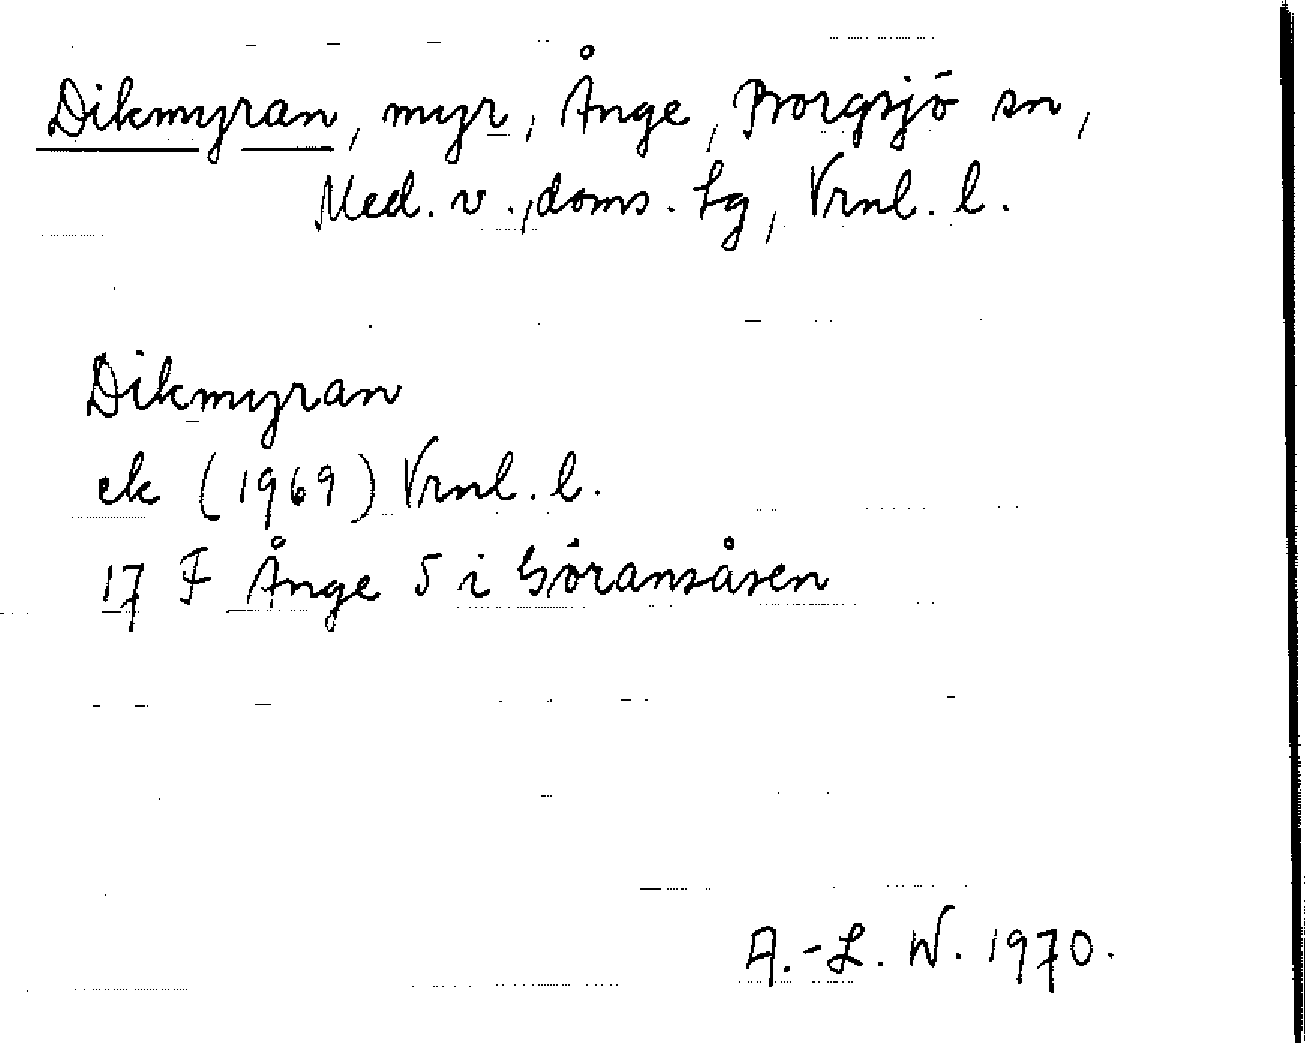 Dikmyran, myr, Ånge, Borgsjö sn,
Med. v., doms. lg, Vrnl. l.
Dikmyran
ek (1969) Vrnl. l.
17 F Ånge 5 i Göransåsen
A.-L. W. 1970.